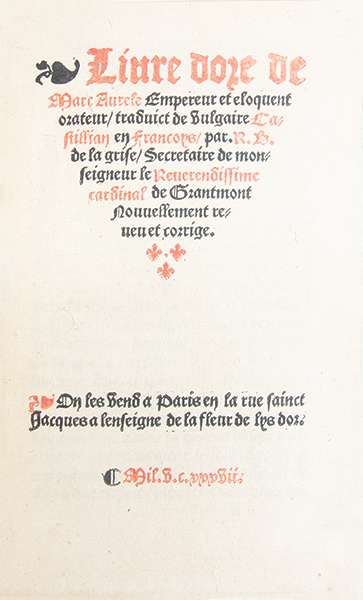 Livre dore de
Marc Aurele Empereur et eloquent
orateur/ traduict de Vulgaire Ca-
stillian en Francoys/ par. R. B.
de la grise/ Secretaire de mon-
seigneur le Reverendissime
cardinal de Grantmont
Nouvellement re-
veu et corrige.
On les vend a Paris en la rue sainct
Jacques a lenseigne de la fleur de lys dor.
Mil. V. c. xxxvii.